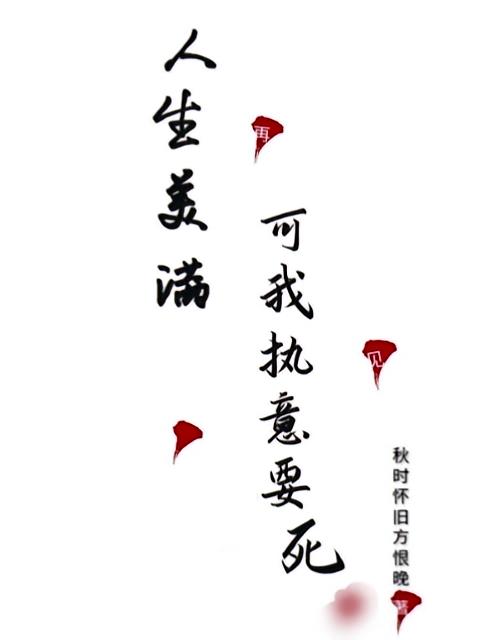 人生美满
可我执意要死
再
见
秋时怀旧方恨晚
著